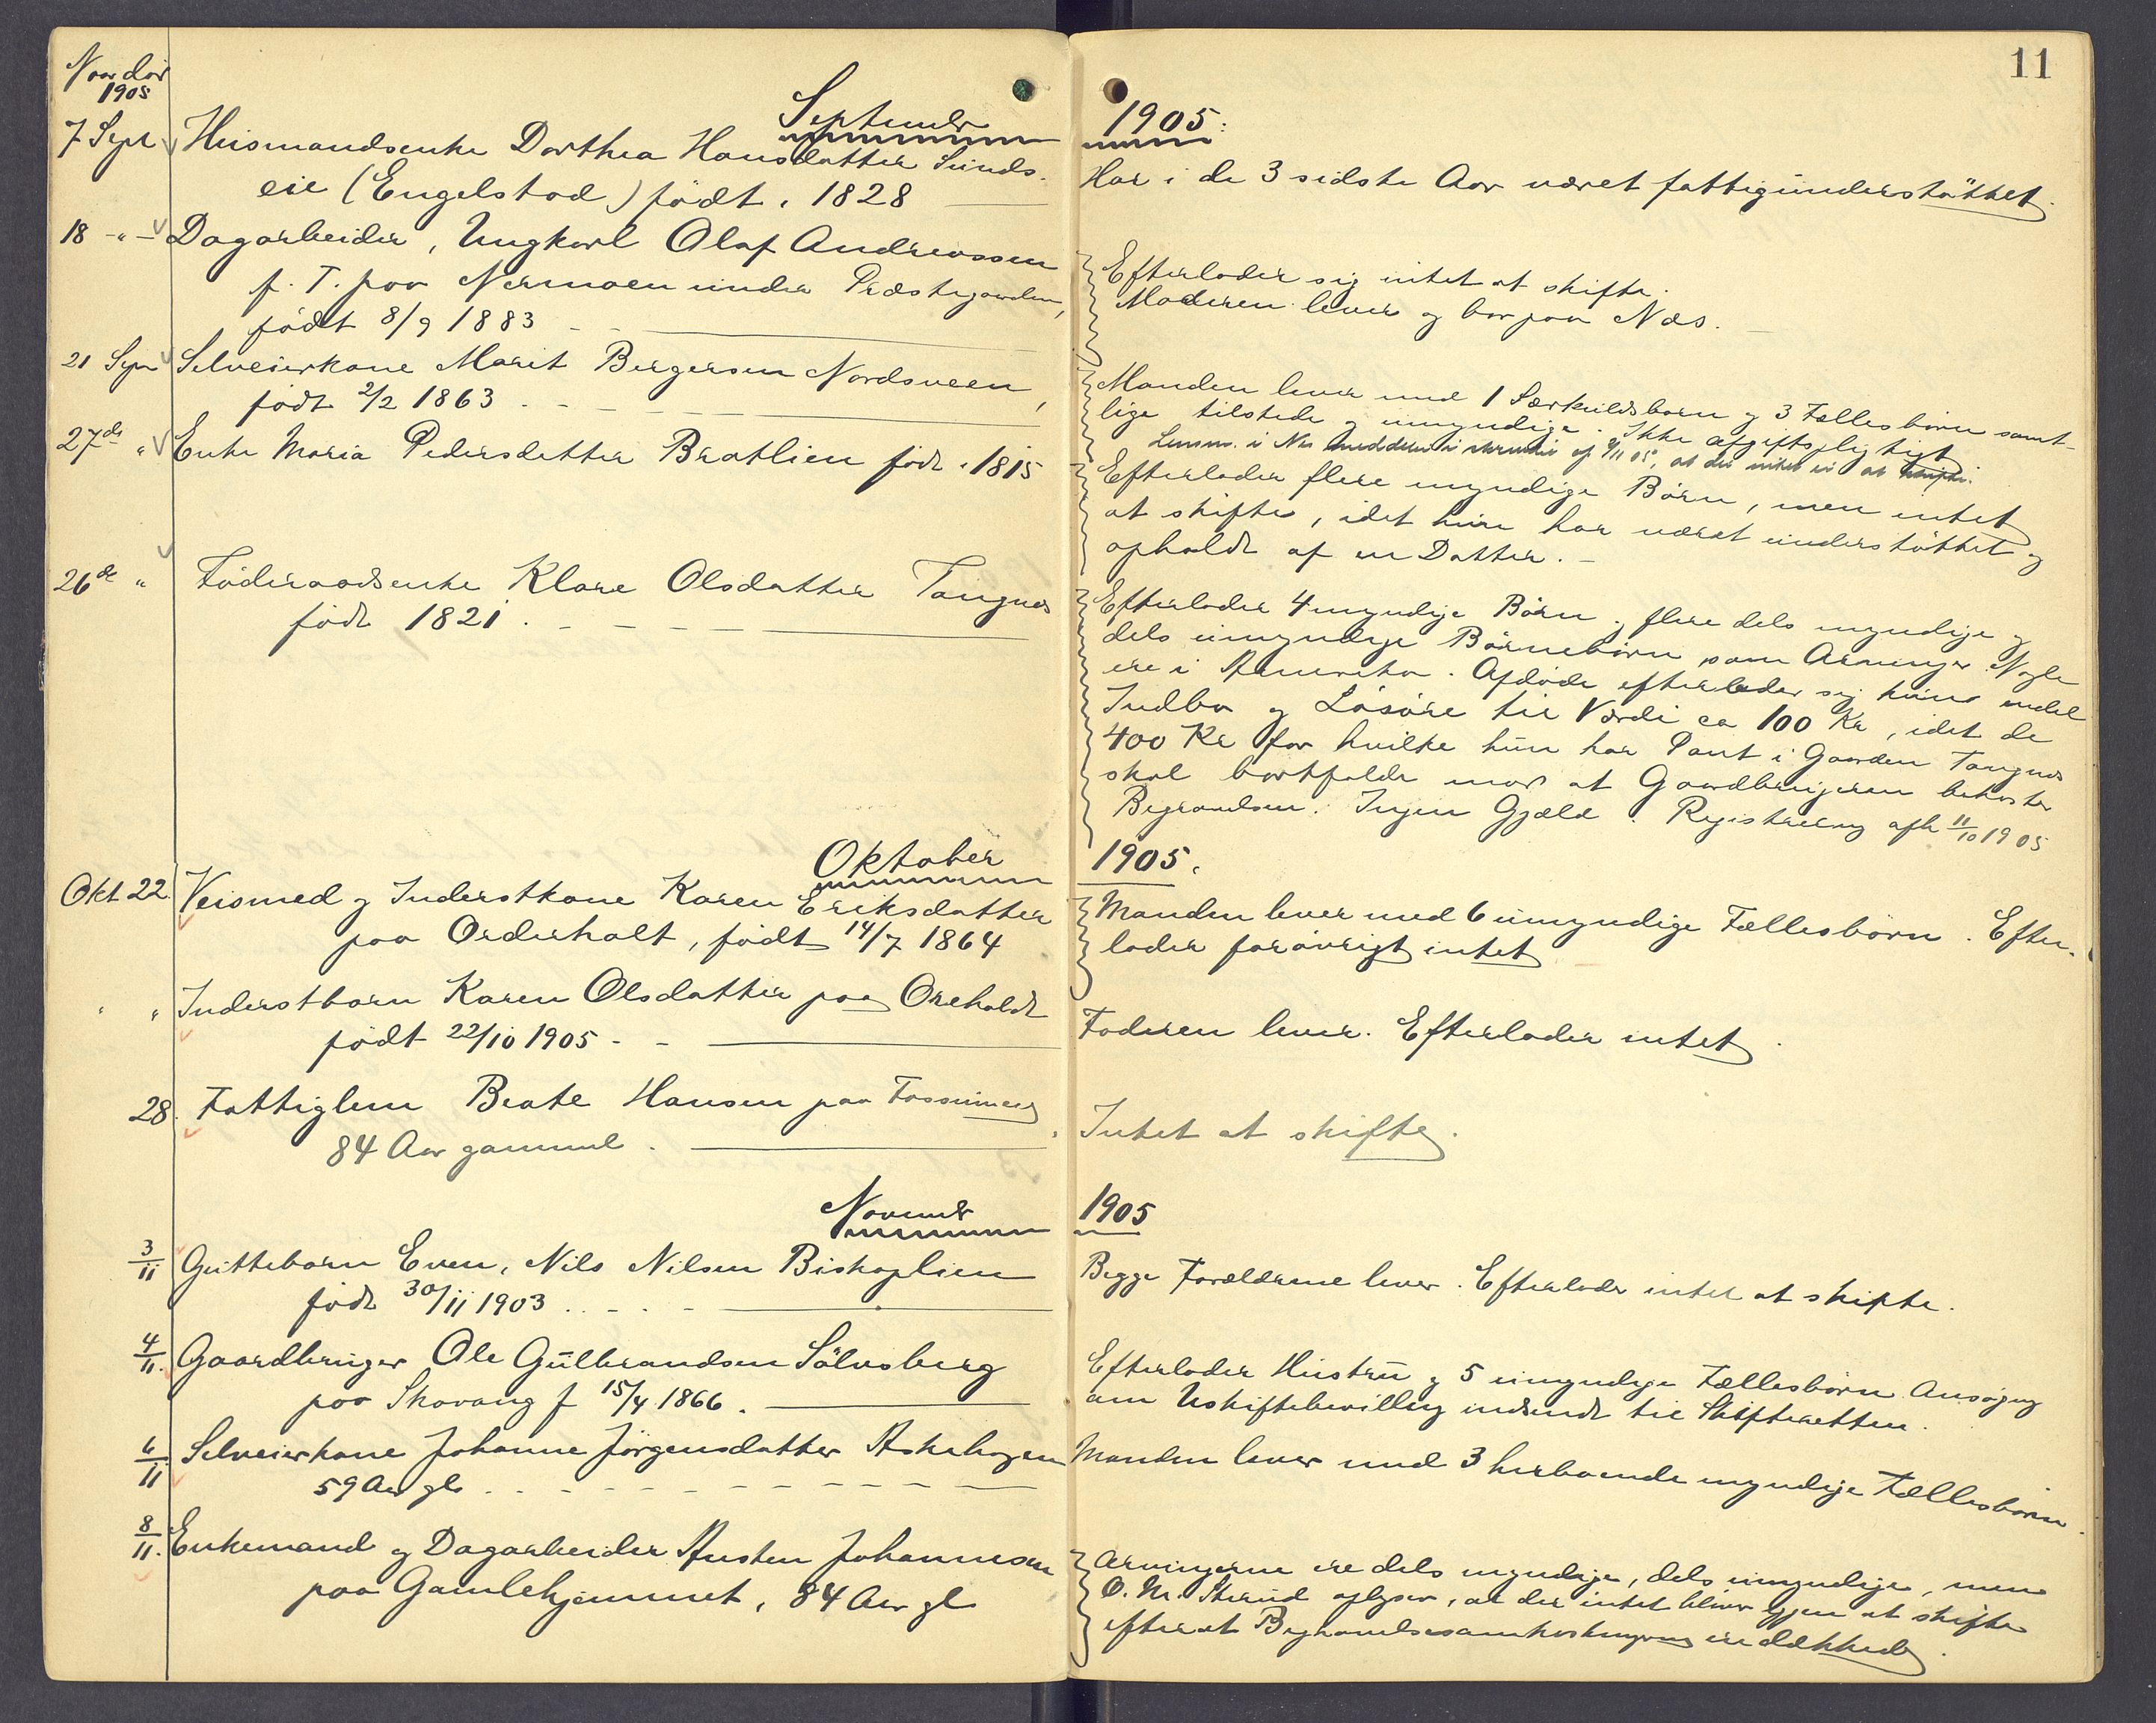 Naar død
1905
11
September
1905.
7 Sept Husmandsenke Dorthea Hansdatter Sunds-
eie (Engelstad) født. 1828
Har i de 3 sidste Aar været fattigunderstøttet.
18 -"- Dagarbeider, Ungkarl Olaf Andreassen
f. T. paa Nermoen under Præstegaarden,
født 8/9 1883
Efterlader sig intet at skifte.
Moderen lever og bor paa Næs.
21 Sept Selveierkone Marit Bergersen Nordsveen,
født 2/2 1863
Manden lever med 1 Særkuldsbarn og 3 Fællesbørn samt-
lige tilstede og umyndige. Ikke afgiftspligtigt
Lensm. i Nes meddeler i skrivelse af 9/11 05, at der intet er at skifte.
27de " Enke Maria Pedersdatter Bratlien født. 1815
Efterlader flere myndige Børn, men intet
at skifte, idet hun har været understøttet og
opholdt af en Datter.
26de " Føderaadsenke Klare Olsdatter Tangnes
født 1821.
Efterlader 4 myndige Børn og flere dels myndige og
dels umyndige Børnebørn som Arvinger. Nogle
ere i Amerika. Afdøde efterlader sig kuns endel
Indbo og Løsøre til Værdi ca 100 Kr, idet de
400 Kr for hvilke hun har Pant i Gaarden Tangnes
skal bortfalde mod at Gaardbrugeren bekoster
Begravelsen. Ingen Gjæld. Registrering afh 11/10 1905
Oktober
1905.
Okt 22. Veismed og Inderstkone Karen Eriksdatter
paa Orderhalt, født 14/7 1864
Manden lever med 6 umyndige Fællesbørn. Efter-
lader forøvrigt intet
" " Inderstbarn Karen Olsdatter paa Oreholdt
født 22/10 1905
Faderen lever. Efterlader intet.
28. Fattiglem Beate Hansen paa
84 Aar gammel.
Intet at skifte.
November
1905
3/11 Guttebarn Even, Nils Nilsen Biskoplien
født 30/11 1903
Begge Forældrene lever. Efterlader intet at skifte.
4/11. Gaardbruger Ole Gulbrandsen Sølvsberg
paa Skovang f 15/4 1866.
Efterlader Hustru og 5 umyndige Fællesbørn. Ansøgning
om Uskiftebevilling indsendt til Skifteretten.
6/11 Selveierkone Johanne Jørgensdatter Askehagen
59 Aar gl.
Manden lever med 3 herboende myndige Fællesbørn.
8/11. Enkemand og Dagarbeider Austen Johannesen
paa Gamlehjemmet, 84 Aar gl
Arvingerne ere dels myndige, dels umyndige, men
O. M. oplyser, at der intet bliver igjen at skifte
efter at Begravelsesomkostningerne ere dækkede.